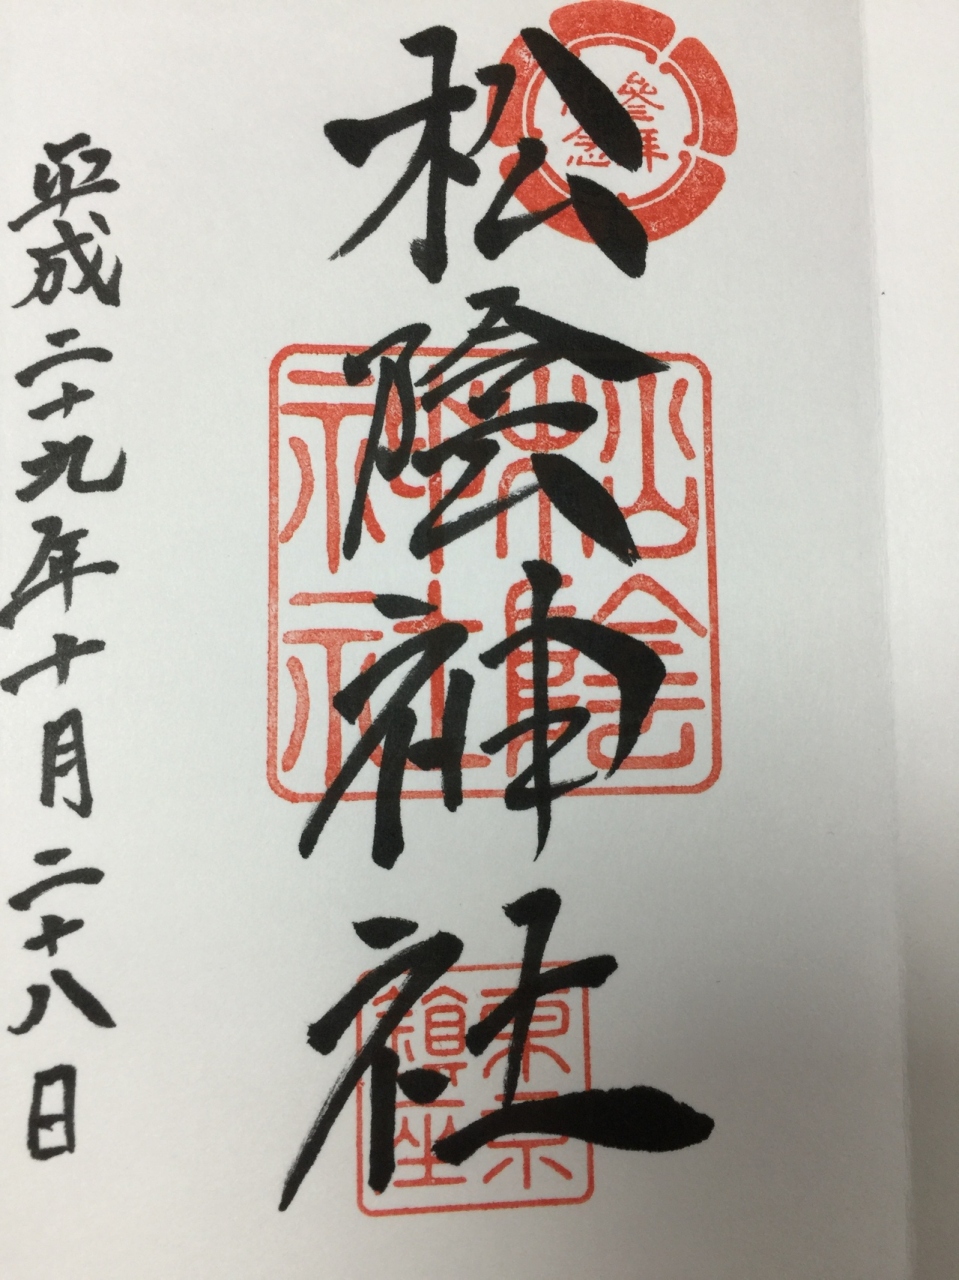 參拝
記念
松陰神社
松陰神社
東京
鎮座
平成二十九年十月二十八日